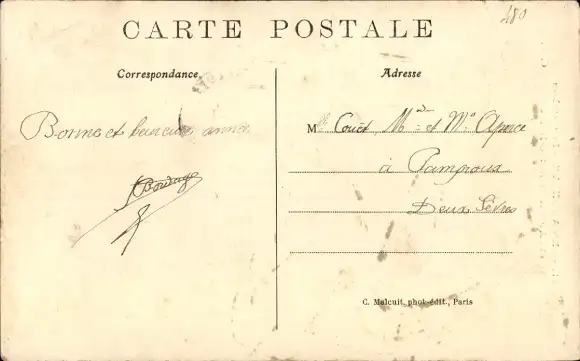 480
CARTE POSTALE
Correspondance
Adresse
Bonne et heureuse année
M
et
à Pamproux
Deux Sèvres
C. Malcuit, phot-édit., Paris